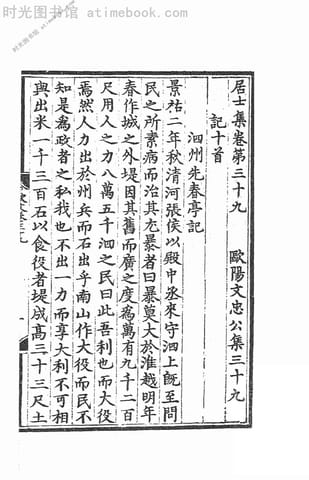 时光图书馆 - atimebook.com
居士集卷第三十九 歐陽文忠公集三十九
記十首
泗州先春亭記
景祐二年秋清河張侯以殿中丞來守泗上旣至問
民之所素病而治其尤暴者曰暴莫大於淮越明年
春作城之外堤因其舊而廣之度爲萬有九千二百
尺用人之力八萬五千泗之民曰此吾利也而大役
焉然人力出於州兵而石出乎南山作大役而民不
知是爲政者之私我也不出一力而享大利不可相
與出米一千三百石以食役者堤成高三十三尺土
时光图书馆 - atimebook.com